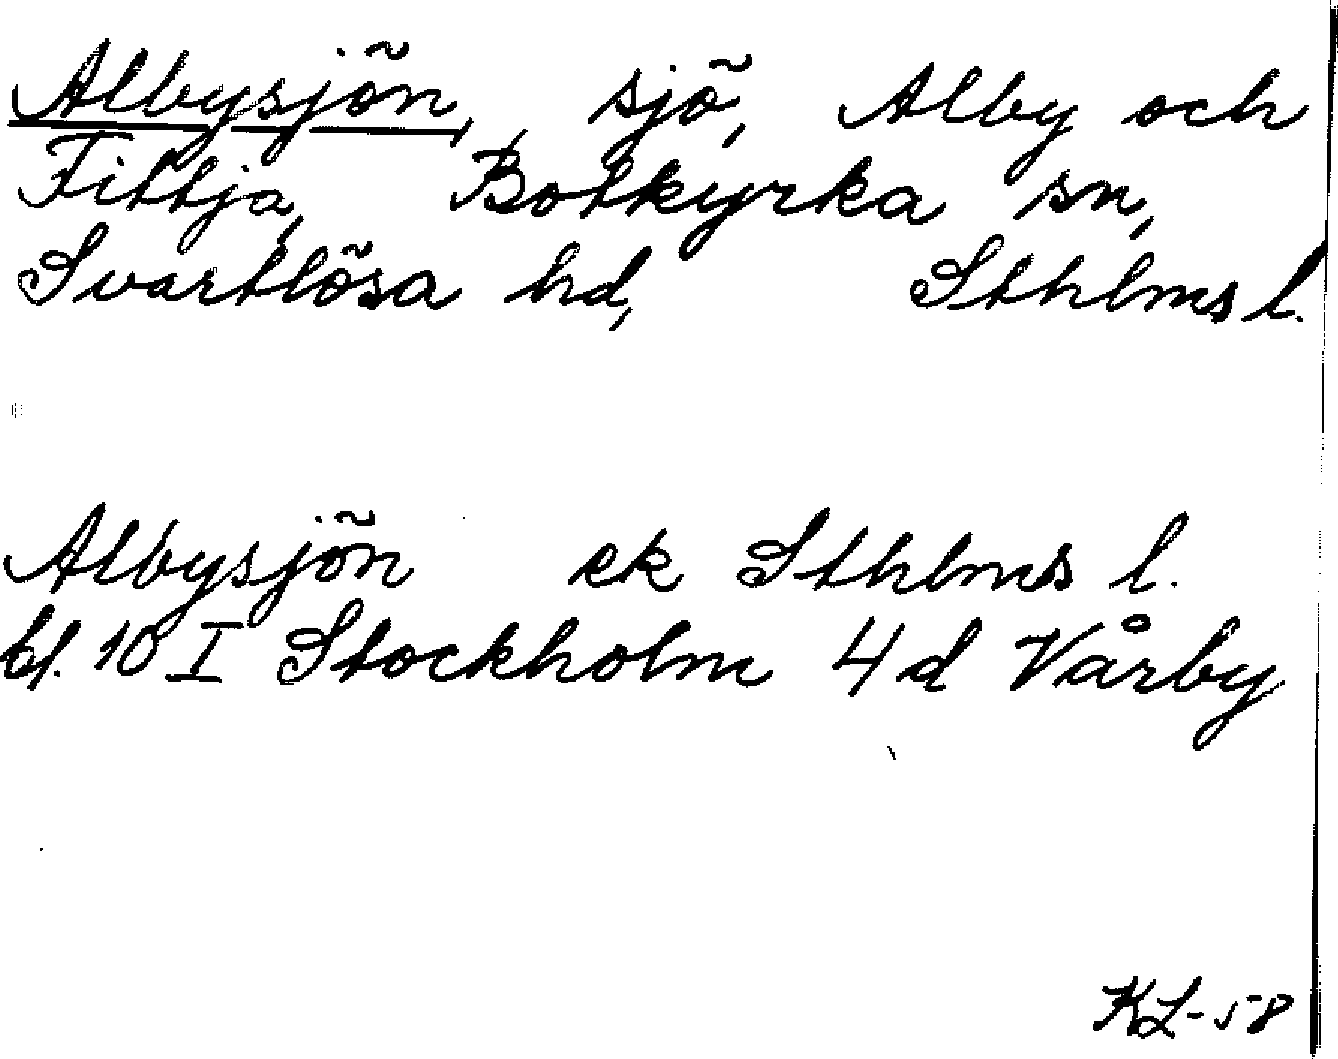 Albysjön, sjö, Alby och
Fittja, Botkyrka sn,
Svartlösa hd, Sthlms l.
Albysjön ek Sthlms l.
bl. 10 I Stockholm 4d Vårby
KL-58